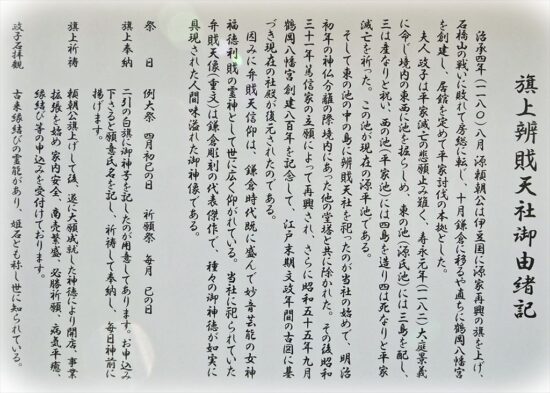 旗上辨財天社御由緒記
治承四年(一一八〇)八月 源頼朝公は伊豆国に源家再興の旗を上げ、
石橋山の戦いに敗れて房総に転じ、十月鎌倉に移るや直ちに鶴岡八幡宮
を創建し、居館を定めて平家討伐の本拠とした。
夫人 政子は平家滅亡の悲願止み難く、寿永元年(一一八二)大庭景義
に命じ境内の東西に池を掘らしめ、東の池(源氏池)には三島を配し、
三は産なりと祝い、西の池(平家池)には四島を造り四は死なりと平家
滅亡を祈った。この池が現在の源平池である。
そして東の池の中の島に辨財天社を祀ったのが当社の始めで、明治
初年の神仏分離の際境内にあった他の堂塔と共に除かれた。その後昭和
三十一年篤信家の立願によって再興され、さらに昭和五十五年九月
鶴岡八幡宮創建八百年を記念して、江戸末期文政年間の古図に基
づき現在の社殿が復元されたのである。
因みに弁財天信仰は、鎌倉時代既に盛んで妙音芸能の女神
福徳利財の霊神として世に広く仰がれている。当社に祀られていた
弁財天像(重文)は鎌倉彫刻の代表傑作で、種々の御神徳が如実に
具現された人間味溢れた御神像である。
祭 日 例大祭 四月初巳の日 祈願祭 毎月 巳の日
旗上奉納 二引の白旗に御神号を記したのが用意してあります。お申込み
下さると願意氏名を記し、祈祷して奉納し、毎日神前に
揚げます。
旗上祈祷 頼朝公旗上げして後、遂に大願成就した神徳により開店、事業
拡張を始め家内安全、商売繁盛、必勝祈願、病気平癒、
縁結び等の申込みを受付けております。
政子石拝観 古来縁結びの霊能があり、姫石とも称し世に知られている。